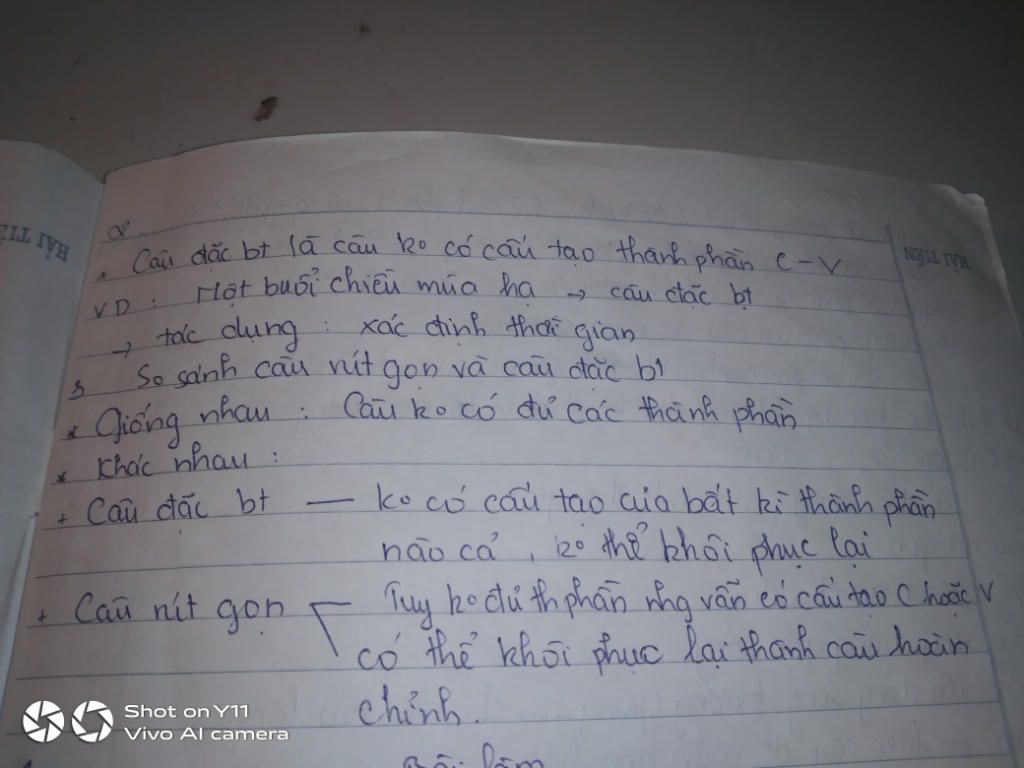 * Câu đặc bt là câu ko có cấu tạo thành phần C-V
VD: Một buổi chiều mùa hạ → câu đặc bt
→ tác dụng: xác định thời gian
So sánh câu rút gọn và câu đặc bt
* Giống nhau: Câu ko có đủ các thành phần
* Khác nhau:
+ Câu đặc bt — ko có cấu tạo của bất kì thành phần
nào cả, ko thể khôi phục lại
+ Câu rút gọn — Tuy ko đủ th phần nhg vẫn có cấu tạo C hoặc V
có thể khôi phục lại thành câu hoàn
chỉnh.
Bài làm
HẢI TIẾN
HẢI TIẾN
Shot on Y11
Vivo AI camera